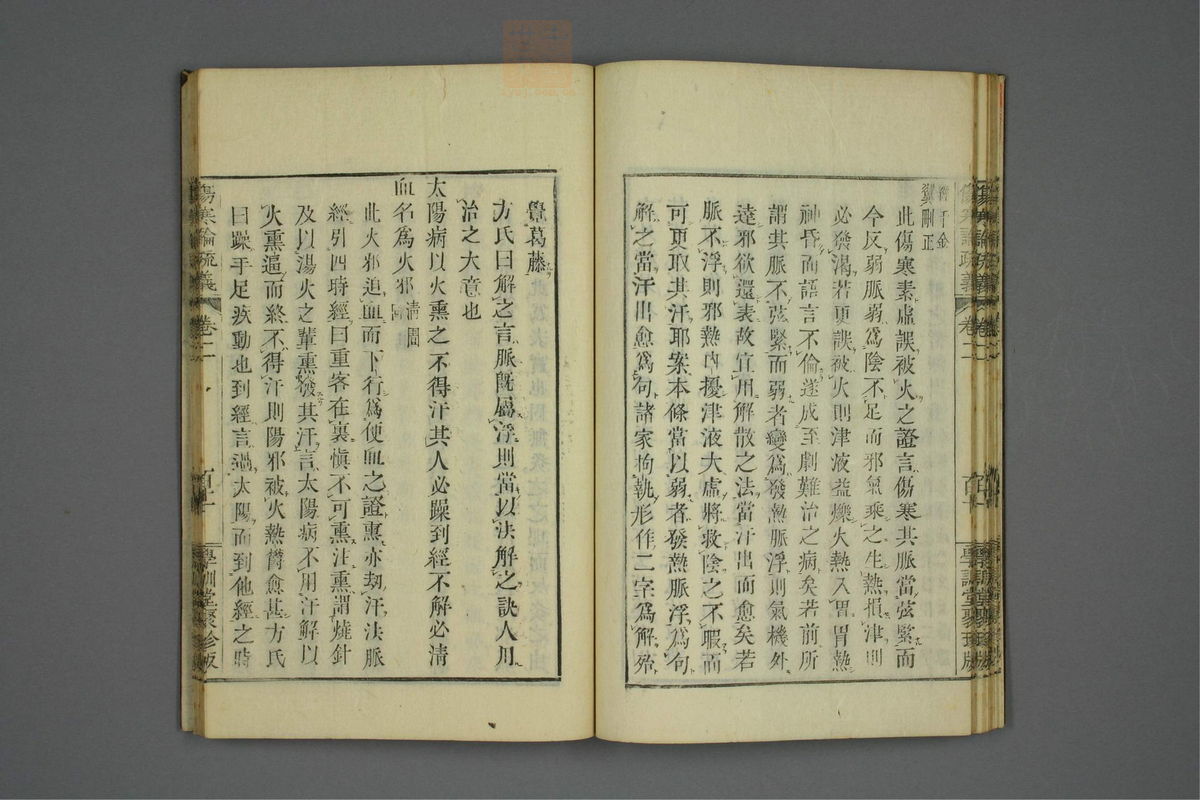 翼剛正
此傷寒素虛誤被火之證言傷寒其脈當弦緊而
今反弱脈弱爲陰不足而邪氣乘之生熱損津則
必發渴若更誤被火則津液益爍火熱入胃胃熱
神昏而語言不倫遂成至劇難治之病矣若前所
謂其脈不弦緊而弱者變爲發熱脈浮則氣機外
達邪欲還表故宜用解散之法當汗出而愈矣若
脈不浮則邪熱內擾津液大虛將救陰之不暇而
可更取其汗耶案本條當以弱者發熱脈浮爲句
解之當汗出愈爲句諸家拘執形作二字爲解殆
覺葛藤
方氏曰解之言脈既屬浮則當以法解之訣人用
治之大意也
太陽病以火熏之不得汗其人必躁到經不解必清
血名爲火邪清圊
此火邪迫血而下行爲便血之證惠亦劫汗法脈
經引四時經曰重客在裏慎不可熏注熏謂燒針
及以湯火之輩熏發其汗言太陽病不用汗解以
火熏逼而終不得汗則陽邪被火熱欝愈甚方氏
曰躁手足疾動也到經言過太陽而到他經之時
傷寒論疏義
卷二
百十一
學訓堂聚珍版